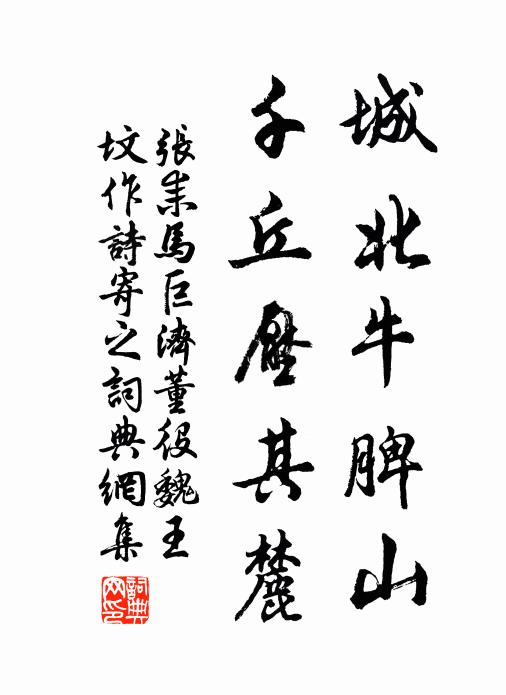 城北牛脾山
千丘壓其麓
張耒馬巨濟董役魏王
坟作詩寄之詞典網集
詞典網印